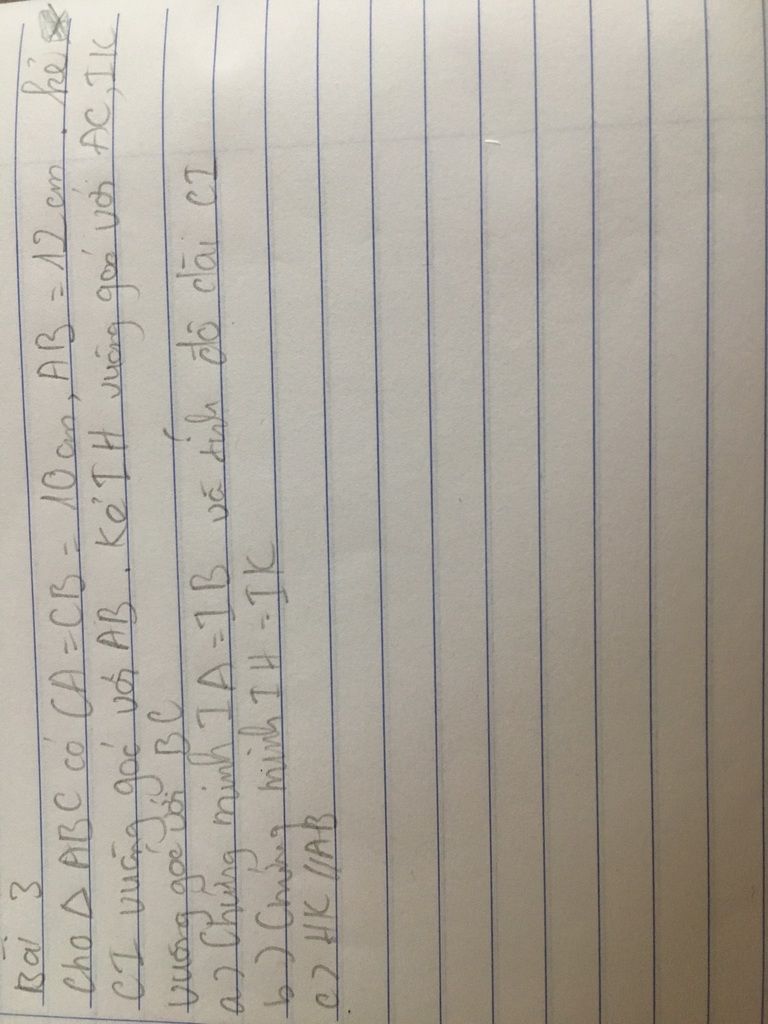 Bài 3
Cho Δ ABC có CA = CB = 10 cm, AB = 12 cm. kẻ
CI vuông góc với AB. Kẻ IH vuông góc với AC, IK
vuông góc với BC
a) Chứng minh IA = IB và tính độ dài CI
b) Chứng minh IH = IK
c) HK // AB